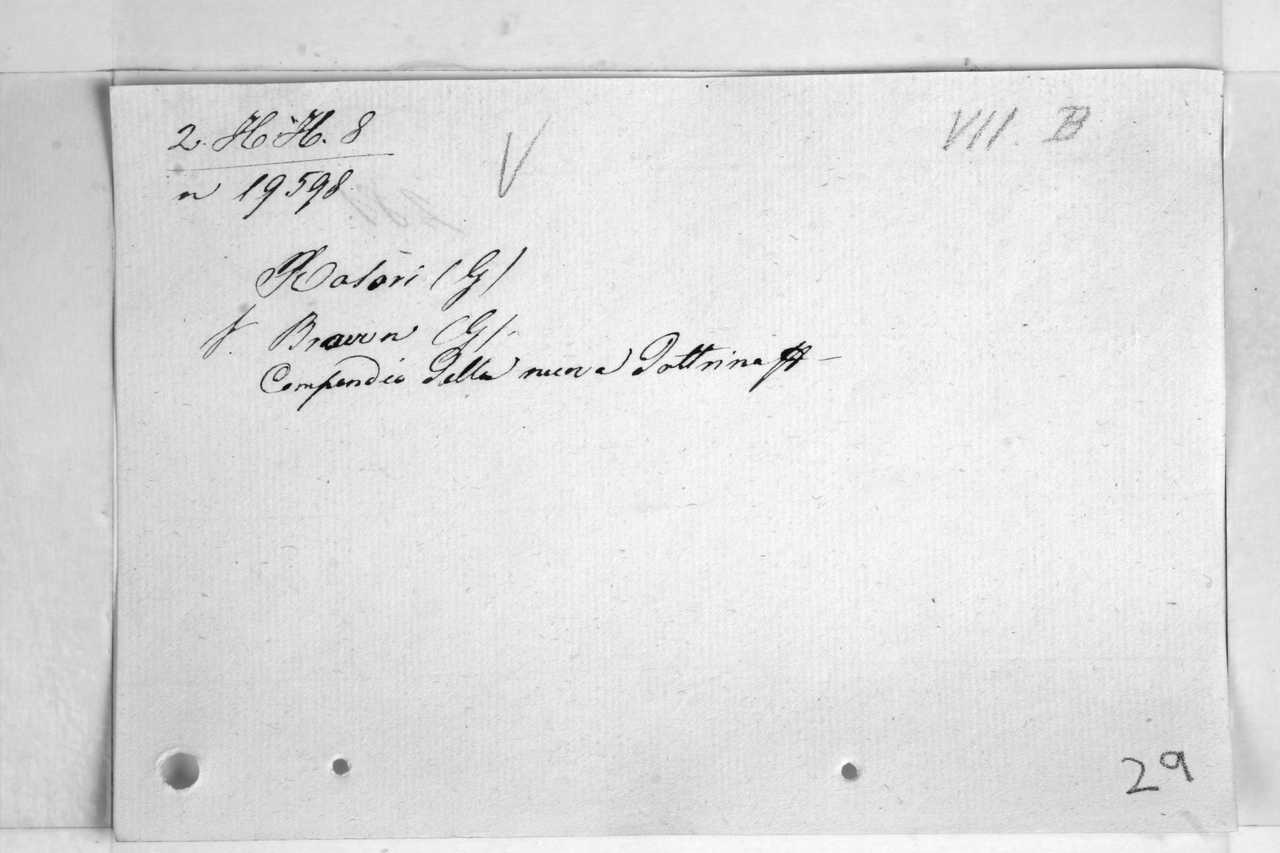 2. H. H. 8
V
VII. B
n 19598
Rasori (G)
f. Brown (G).
Compendio della nuova Dottrina
29